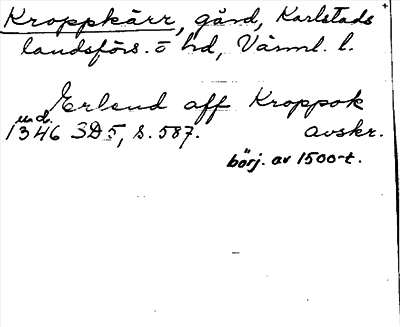 Kroppkärr, gård, Karlstads
landsförs. o hd, Värml. l.
Erlend aff Kroppok
u.d.
1346 SD 5, s. 587. avskr.
börj. av 1500-t.